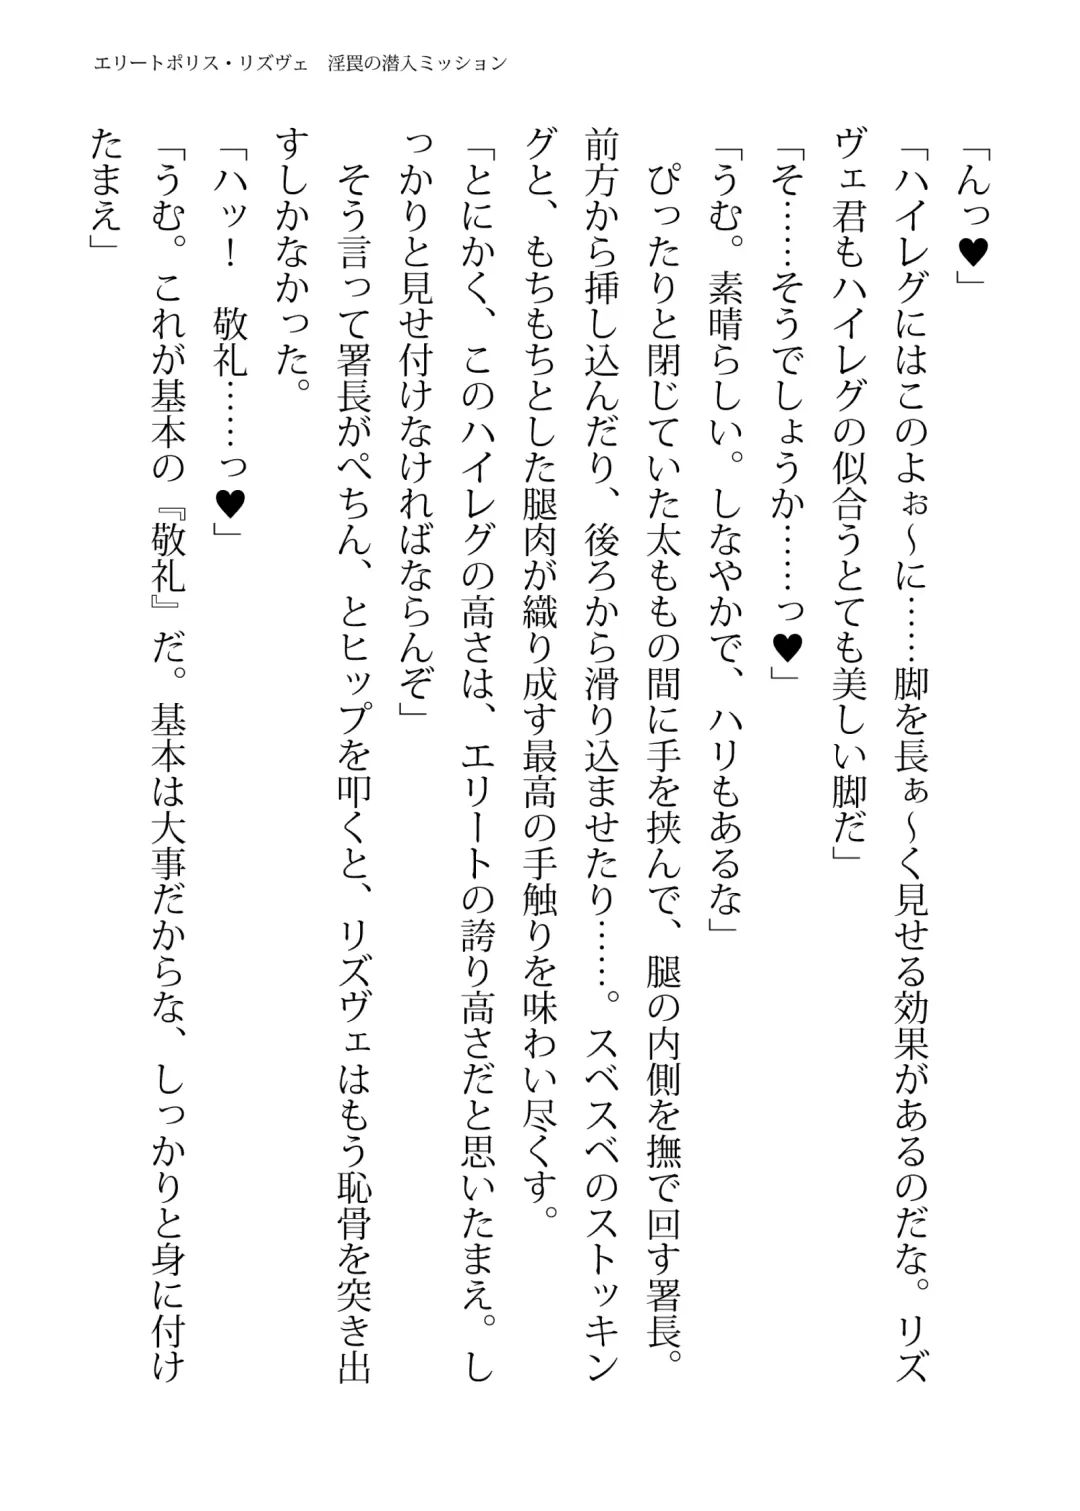 エリートポリス・リズヴェ　淫罠の潜入ミッション
「んっ♥」
「ハイレグにはこのよぉ～に……脚を長ぁ～く見せる効果があるのだな。リズ
ヴェ君もハイレグの似合うとても美しい脚だ」
「そ……そうでしょうか……っ♥」
「うむ。素晴らしい。しなやかで、ハリもあるな」
　ぴったりと閉じていた太ももの間に手を挟んで、腿の内側を撫で回す署長。
前方から挿し込んだり、後ろから滑り込ませたり……。スベスベのストッキン
グと、もちもちとした腿肉が織り成す最高の手触りを味わい尽くす。
「とにかく、このハイレグの高さは、エリートの誇り高さだと思いたまえ。し
っかりと見せ付けなければならんぞ」
　そう言って署長がぺちん、とヒップを叩くと、リズヴェはもう恥骨を突き出
すしかなかった。
「ハッ！　敬礼……っ♥」
「うむ。これが基本の『敬礼』だ。基本は大事だからな、しっかりと身に付け
たまえ」